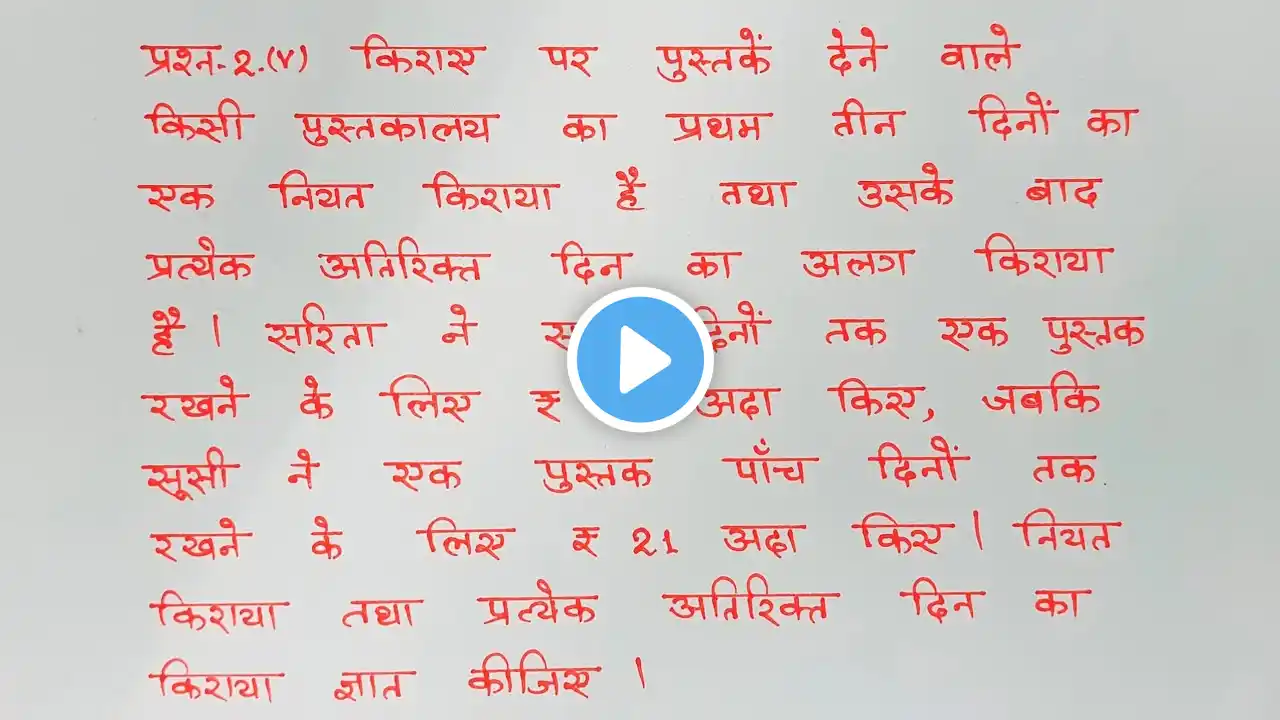 प्रश्न-2.(v) किराए पर पुस्तकें देने वाले
किसी पुस्तकालय का प्रथम तीन दिनों का
एक नियत किराया है तथा उसके बाद
प्रत्येक अतिरिक्त दिन का अलग किराया
है। सरिता ने दिनों तक एक पुस्तक
रखने के लिए ₹ अदा किए, जबकि
सूसी ने एक पुस्तक पाँच दिनों तक
रखने के लिए ₹ 21 अदा किए। नियत
किराया तथा प्रत्येक अतिरिक्त दिन का
किराया ज्ञात कीजिए।